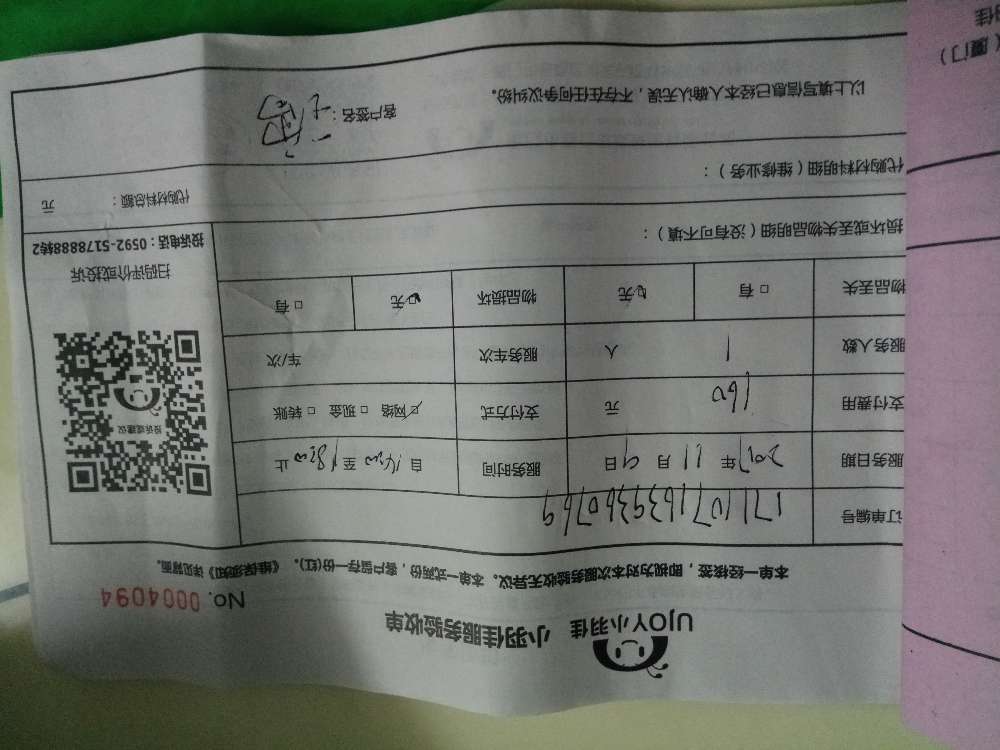 UJOY小羽佳 小羽佳服务验收单
No. 0004094
本单一经接签，即视为对本次服务验收无异议。本单一式两份，客户留存一份(红)。《维保须知》详见背面。
订单编号 1711071639360769
服务日期 2017年11月9日 服务时间 自14:00至18:00止
支付费用 160 元 支付方式 ☑网络 □现金 □转账
服务人数 1 人 服务车次 车/次
物品丢失 □有 ☑无 物品损坏 ☑无 □有
投诉或建议
扫码评价或投诉
投诉电话：0592-5178888转2
损坏或丢失物品明细（没有可不填）：
代购材料明细（维修业务）：
代购材料总额： 元
以上填写信息已经本人确认无误，不存在任何争议纠纷。
客户签名：
（厦门）
佳